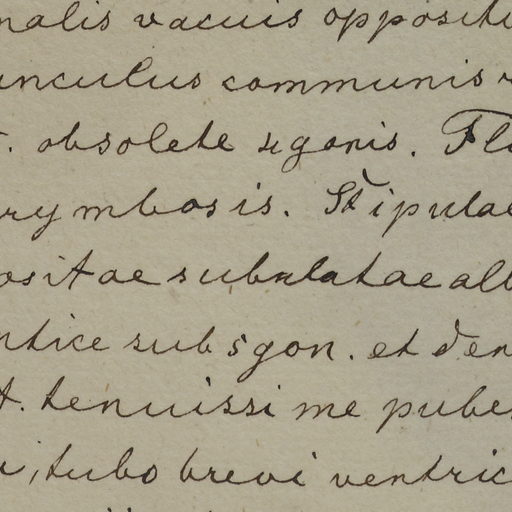 nalis vacuis oppositi
unculus communis
. obsolete 4gonis. Flo
rymbosis. Stipulae
ositae subulatae alb
ntice sub5gon. et den
t. tenuissime pubes
i, tubo brevi ventric